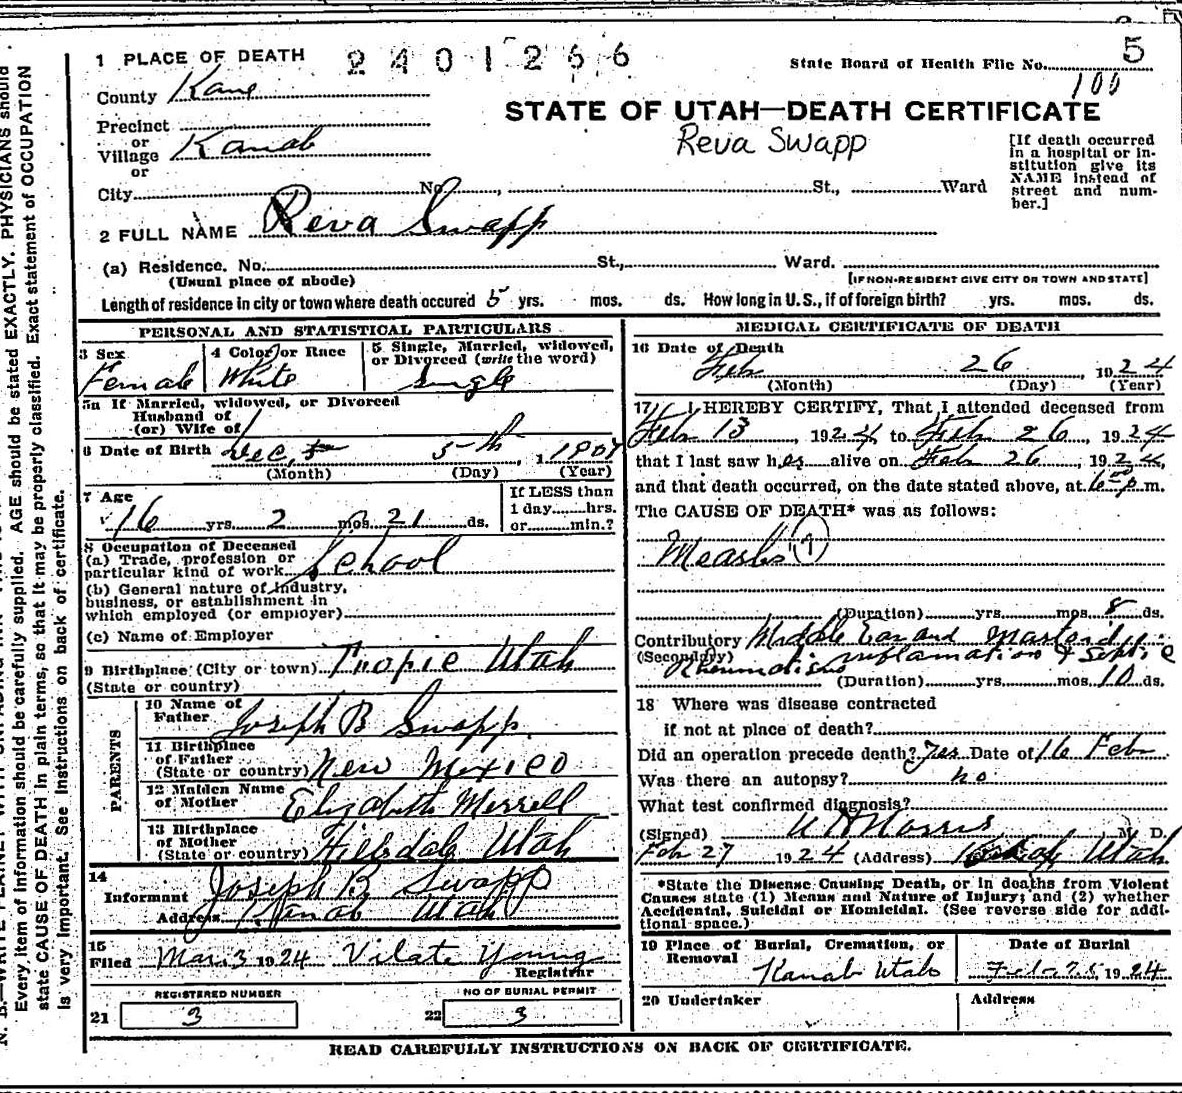 1 PLACE OF DEATH 2401266
State Board of Health File No. 5
100
County Kane
STATE OF UTAH—DEATH CERTIFICATE
Reva Swapp
Precinct
or
Village Kanab
or
City No. , St., Ward
[If death occurred
in a hospital or in-
stitution give its
NAME instead of
street and num-
ber.]
2 FULL NAME Reva Swapp
(a) Residence. No. St., Ward.
(Usual place of abode) [IF NON-RESIDENT GIVE CITY OR TOWN AND STATE]
Length of residence in city or town where death occured 5 yrs. mos. ds. How long in U. S., if of foreign birth? yrs. mos. ds.
PERSONAL AND STATISTICAL PARTICULARS
3 Sex
Female
4 Color or Race
White
5 Single, Married, widowed,
or Divorced (write the word)
Single
5a If Married, widowed, or Divorced
Husband of
(or) Wife of
6 Date of Birth Dec, 5th, 1907
(Month) (Day) (Year)
7 Age
16 yrs. 2 mos. 21 ds.
If LESS than
1 day......hrs.
or......min.?
8 Occupation of Deceased
(a) Trade, profession or
particular kind of work School
(b) General nature of Industry,
business, or establishment in
which employed (or employer)
(c) Name of Employer
9 Birthplace (City or town) Tropic Utah
(State or country)
PARENTS
10 Name of
Father Joseph B Swapp
11 Birthplace
of Father
(State or country) New Mexico
12 Maiden Name
of Mother Elizabeth Merrell
13 Birthplace
of Mother
(State or country) Hillsdale Utah
14
Informant Joseph B Swapp
Address Kanab Utah
15
Filed Mar. 3 1924 Vilate Young
Registrar
REGISTERED NUMBER
21 3
NO OF BURIAL PERMIT
22 3
MEDICAL CERTIFICATE OF DEATH
16 Date of Death
Feb 26, 1924
(Month) (Day) (Year)
17 I HEREBY CERTIFY, That I attended deceased from
Feb 13, 1924 to Feb 26, 1924
that I last saw her alive on Feb 26, 1924,
and that death occurred, on the date stated above, at 6 00 p m.
The CAUSE OF DEATH* was as follows:
Measles
(Duration) yrs. mos. 8 ds.
Contributory Middle Ear and Mastoid
(Secondary) inflamation & Septic
Rheumatism
(Duration) yrs. mos. 10 ds.
18 Where was disease contracted
if not at place of death?
Did an operation precede death? Yes Date of 16 Feb
Was there an autopsy? no
What test confirmed diagnosis?
(Signed) Morris M. D.
Feb 27 1924 (Address) Kanab Utah
*State the Disease Causing Death, or in deaths from Violent
Causes state (1) Means and Nature of Injury; and (2) whether
Accidental, Suicidal or Homicidal. (See reverse side for addi-
tional space.)
19 Place of Burial, Cremation, or
Removal
Kanab Utah
Date of Burial
Feb 28, 1924
20 Undertaker
Address
READ CAREFULLY INSTRUCTIONS ON BACK OF CERTIFICATE.
Every item of information should be carefully supplied. AGE should be stated EXACTLY. PHYSICIANS should
state CAUSE OF DEATH in plain terms, so that it may be properly classified. Exact statement of OCCUPATION
is very important. See instructions on back of certificate.